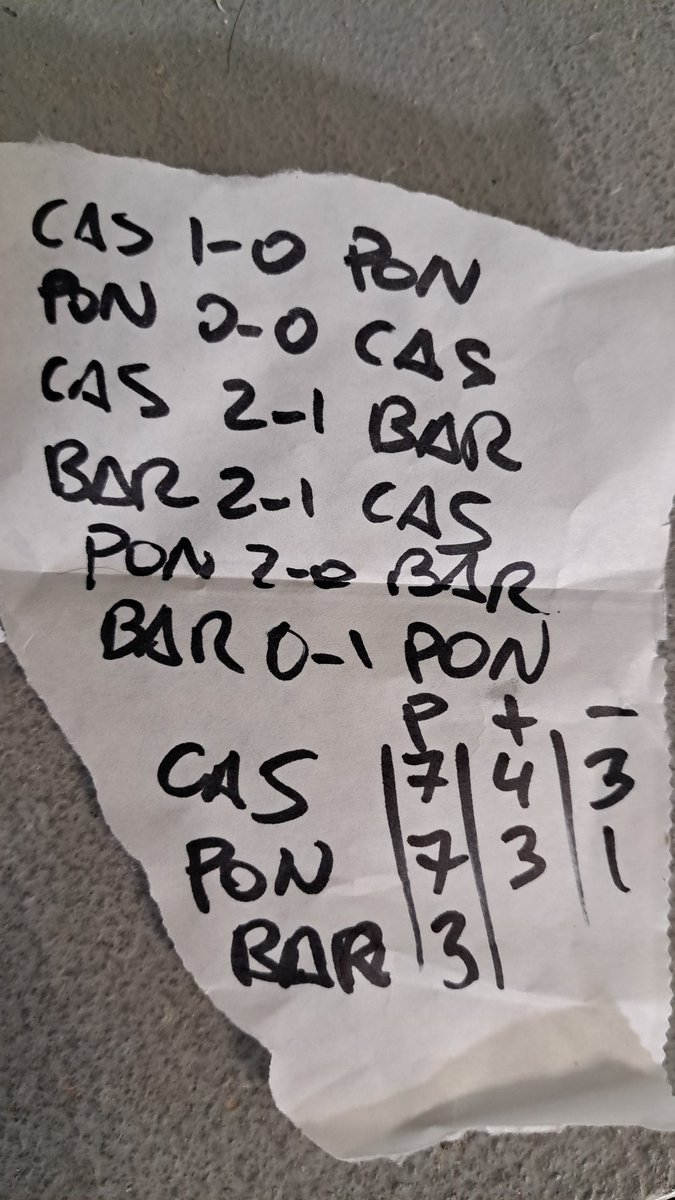 CAS 1-0 PON
PON 0-0 CAS
CAS 2-1 BAR
BAR 2-1 CAS
PON 2-0 BAR
BAR 0-1 PON
P + -
CAS | 7 | 4 | 3
PON | 7 | 3 | 1
BAR | 3 |